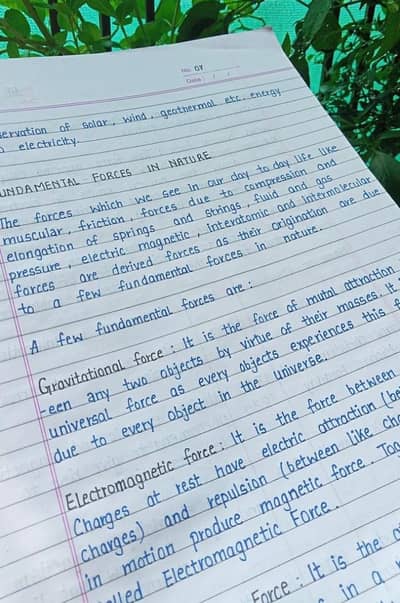 No. 04
Date / /
servation of solar, wind, geothermal etc. energy
electricity.
UNDAMENTAL FORCES IN NATURE
The forces which we see in our day to day life like
muscular, friction, forces due to compression and
elongation of springs and strings, fluid and gas
pressure, electric magnetic, interatomic and intermolecular
forces are derived forces as their origination are due
to a few fundamental forces in nature.
A few fundamental forces are :
Gravitational force : It is the force of mutal attraction
-een any two objects by virtue of their masses. It
universal force as every objects experiences this f
due to every object in the universe.
Electromagnetic force : It is the force between
Charges at rest have electric attraction (be
charges) and repulsion (between like cha
in motion produce magnetic force. Tog
lled Electromagnetic Force.
Force : It is the
in a